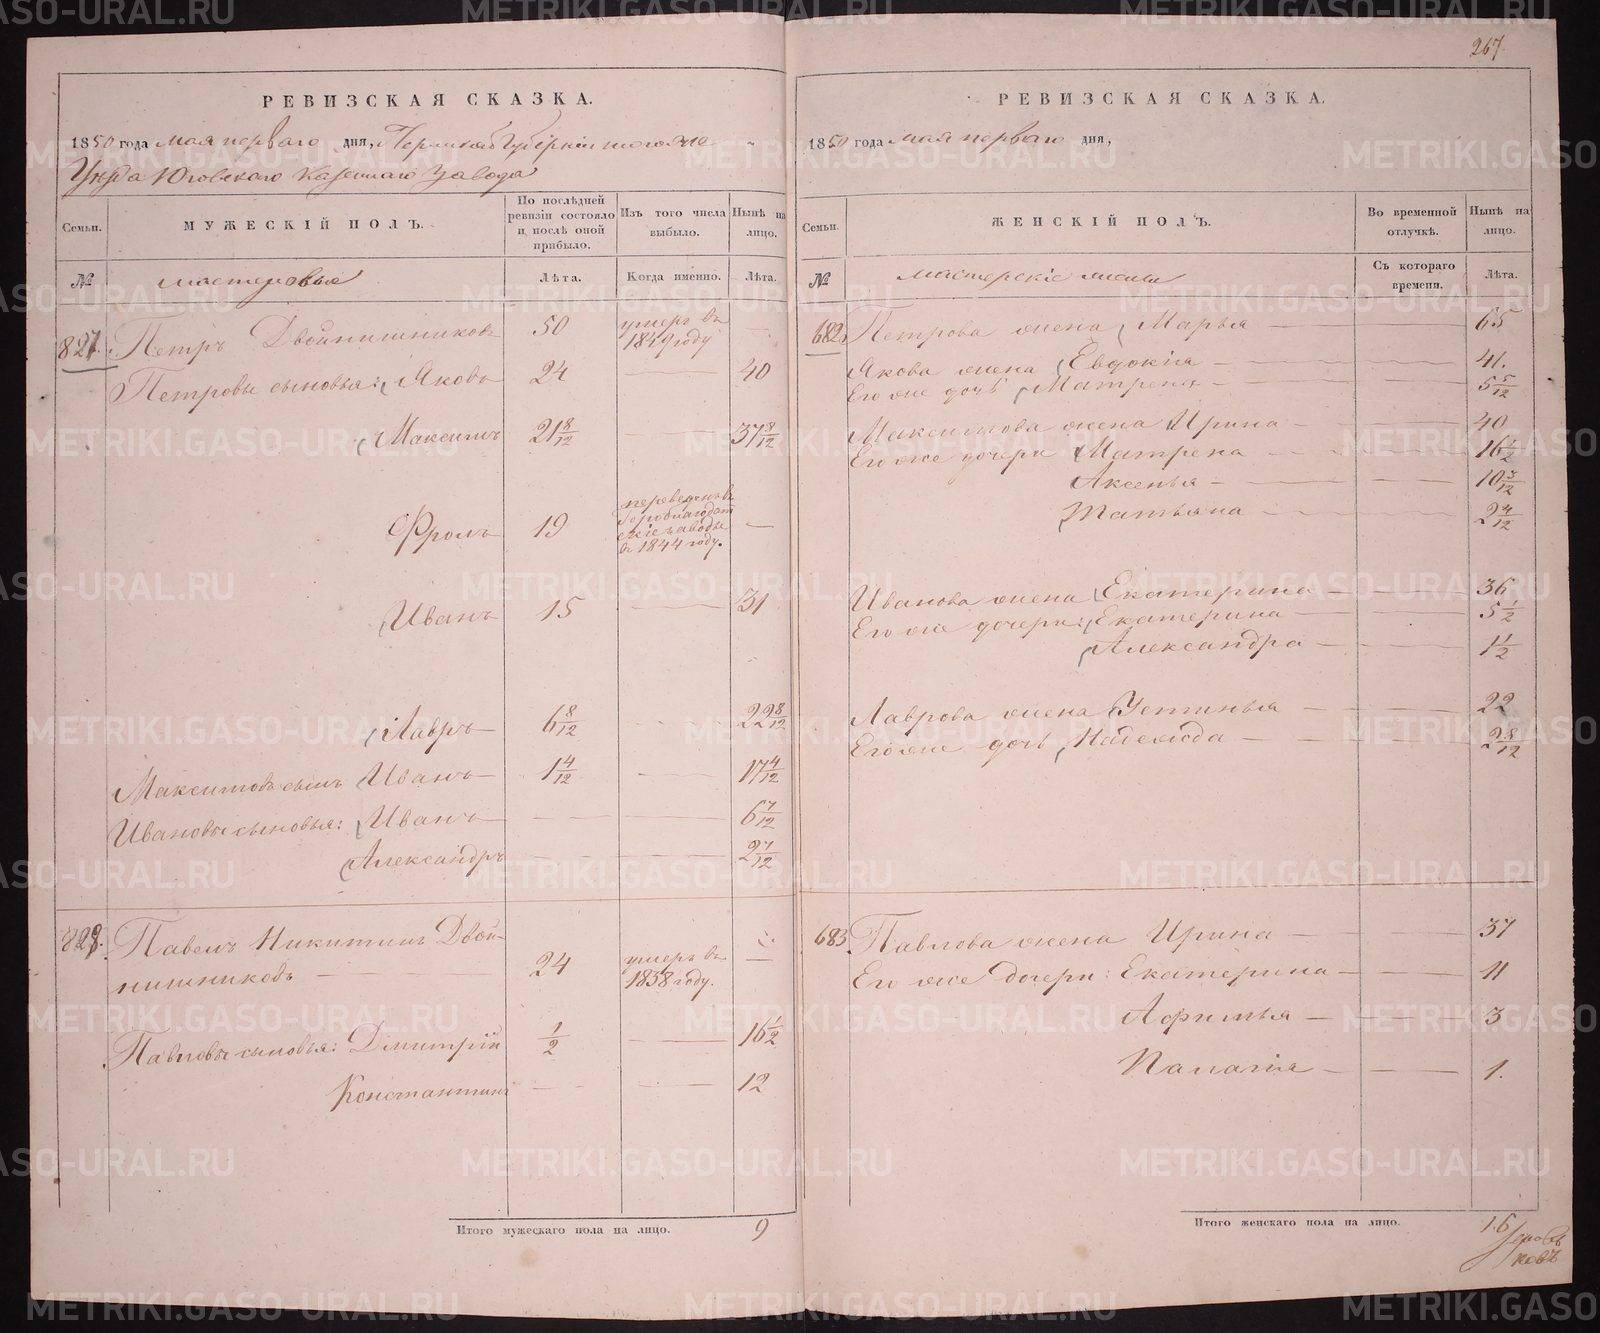 267.
РЕВИЗСКАЯ СКАЗКА.
1850 года мая перваго дня, Пермской Губернии
Уезда Юговскаго Казеннаго Завода
Семьи.
МУЖЕСКІЙ ПОЛЪ.
По послѣдней ревизіи состояло и послѣ оной прибыло.
Изъ того числа выбыло.
Нынѣ на лицо.
№
мастеровые
Лѣта.
Когда именно.
Лѣта.
827. Петръ Двойнишниковъ 50 умеръ въ 1849 году —
Петровы сыновья: Яковъ 24 — 40
Максимъ 21 8/12 — 37 8/12
Фролъ 19 переведенъ въ Гороблагодатскіе заводы въ 1844 году. —
Иванъ 15 — 31
Лавръ 6 8/12 — 22 8/12
Максимовъ сынъ Иванъ 1 4/12 — 17 4/12
Ивановы сыновья: Иванъ — — 6 7/12
Александръ — — 2 7/12
828. Павелъ Никитинъ Двой-
нишниковъ — 24 умеръ въ 1838 году. —
Павловы сыновья: Дмитрій 1/2 — 16 1/2
Константинъ — — 12
Итого мужескаго пола на лицо. 9
РЕВИЗСКАЯ СКАЗКА.
1850 года мая перваго дня,
Семьи.
ЖЕНСКІЙ ПОЛЪ.
Во временной отлучкѣ.
Нынѣ на лицо.
№
мастерскіе жены
Съ котораго времени.
Лѣта.
682. Петрова жена Марья — — 65
Якова жена Евдокія — — 41.
Его же дочь Матрена — — 5 5/12
Максимова жена Ирина — — 40
Его же дочери Матрена — — 16 1/2
Аксенья — — 10 3/12
Татьяна — — 2 4/12
Иванова жена Екатерина — — 36
Его же дочери: Екатерина — — 5 1/2
Александра — — 1 1/2
Лаврова жена Устинья — — 22
Его же дочь Надежда — — 2 8/12
683. Павлова жена Ирина — — 37
Его же дочери: Екатерина — — 11
Афимья — — 3
Палагія — — 1.
Итого женскаго пола на лицо. 16
METRIKI.GASO-URAL.RU